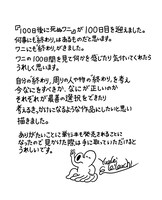 『100日後に死ぬワニ』が100日目を迎えました。
何事にも終わりはあるものだと思います。
ワニにも終わりがきました。
ワニの100日間を見て何かを感じたり気付いてくれたら
うれしく思います。
自分の終わり、周りの人や物の終わり、を考え
今なにをすべきか、なにが正しいのか
それぞれが最善の選択をできたり
考える、きっかけになるような作品にしたいと思い
描きました。
ありがたいことに単行本も発売されることに
なったので見かけた際は手に取っていただけると
うれしいです。
Yuuki